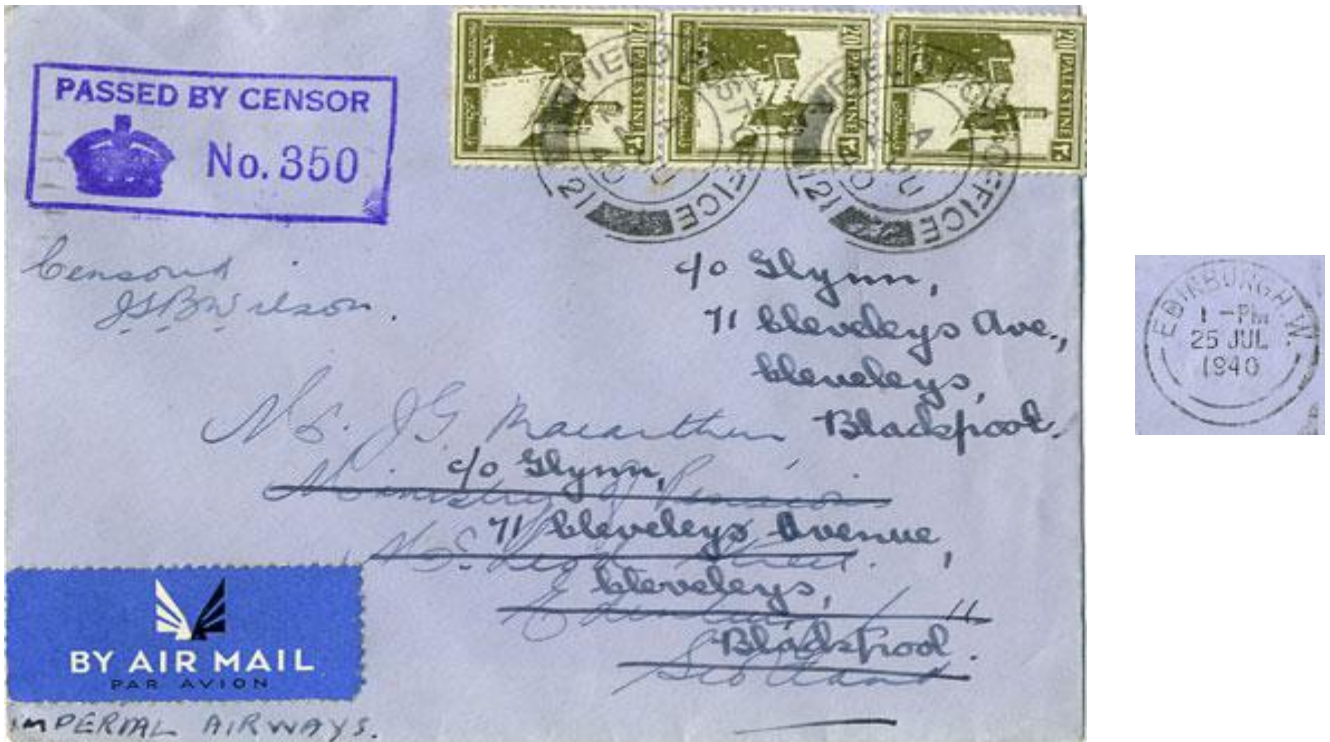 PASSED BY CENSOR
No. 350
20 PALESTINE
20 PALESTINE
20 PALESTINE
FIELD POST OFFICE
121
FIELD POST OFFICE
121
Censored
JSBWilson.
c/o Glynn,
71 Cleveleys Ave.,
Cleveleys,
Blackpool.
J.G. Macarthur
c/o Glynn,
Ministry of Pensions
71 Cleveleys Avenue,
Street.
Cleveleys,
Edinburgh 11
Blackpool.
Scotland
BY AIR MAIL
PAR AVION
IMPERIAL AIRWAYS.
EDINBURGH.W.
1 - PM
25 JUL
1940